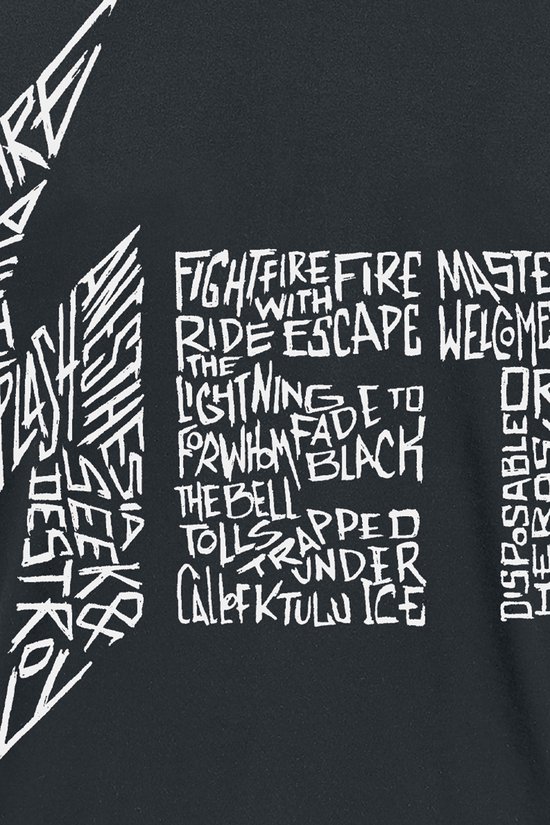 PLASH
ANESTHESIA
SEEK &
DESTROY
FIGHT FIRE WITH FIRE
RIDE THE LIGHTNING
ESCAPE
FOR WHOM THE BELL TOLLS
FADE TO BLACK
TRAPPED UNDER ICE
CALL OF KTULU
MASTE
WELCOME
OR
DISPOSABLE